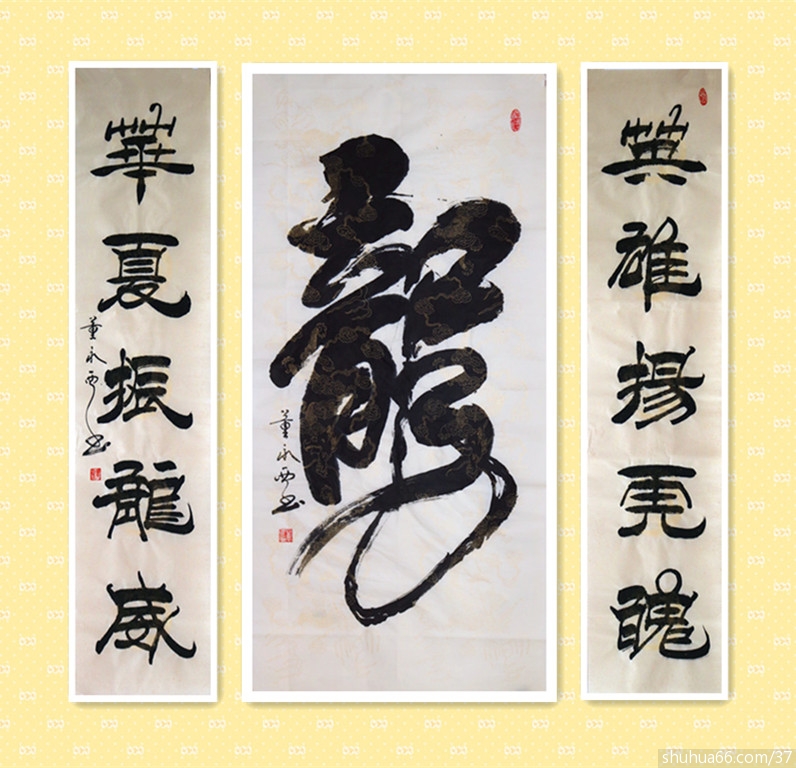 英雄揚虎魄
龍
董永西书
華夏振龍威
董永西书
shuhua66.com/37